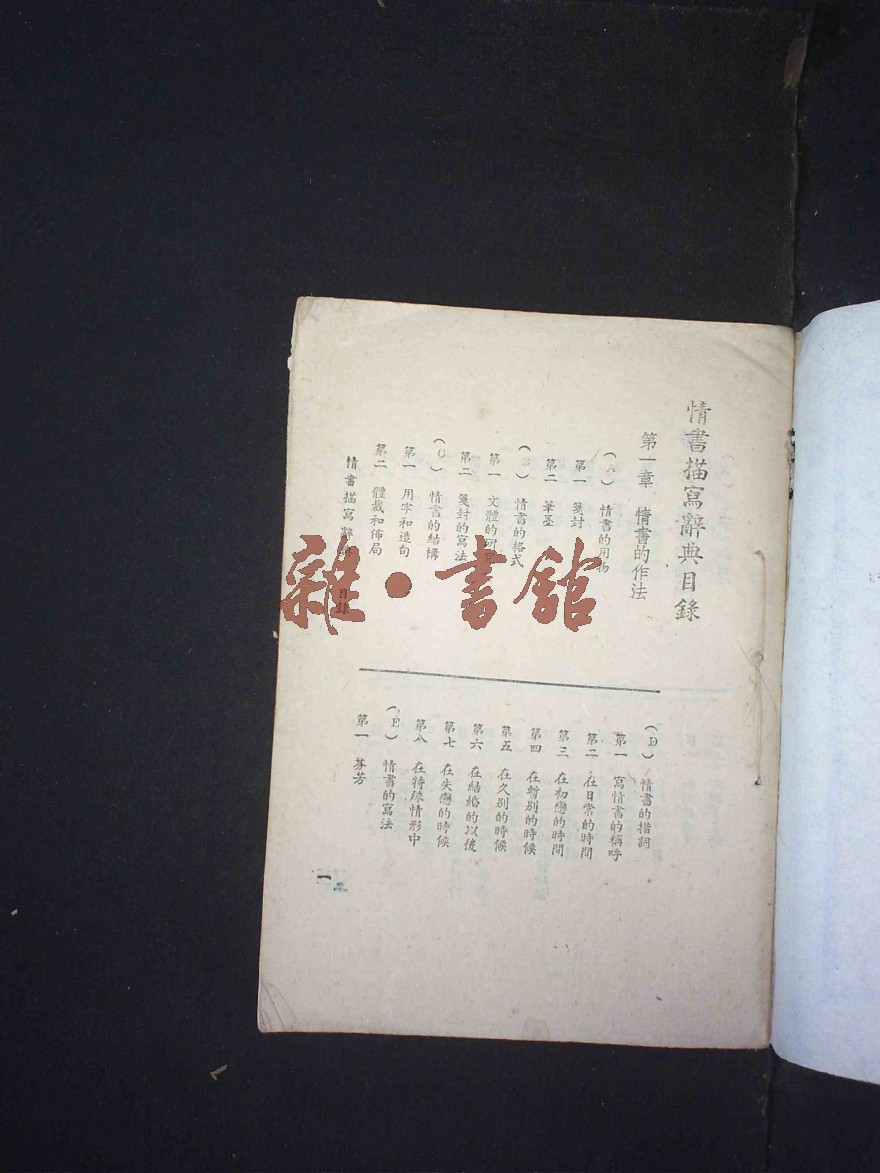 情書描寫辭典目錄
第一章　情書的作法
（A）　情書的用物
第一　箋封
第二　筆墨
（B）　情書的格式
第一　文體的
第二　箋封的寫法
（C）　情書的結構
第一　用字和造句
第二　體裁和佈局
情書描寫辭典　目錄
（D）　情書的措詞
第一　寫情書的稱呼
第二　在日常的時間
第三　在初戀的時間
第四　在暫別的時候
第五　在久別的時候
第六　在結婚的以後
第七　在失戀的時候
第八　在特殊情形中
（E）　情書的寫法
第一　芬芳
一
雜·書館